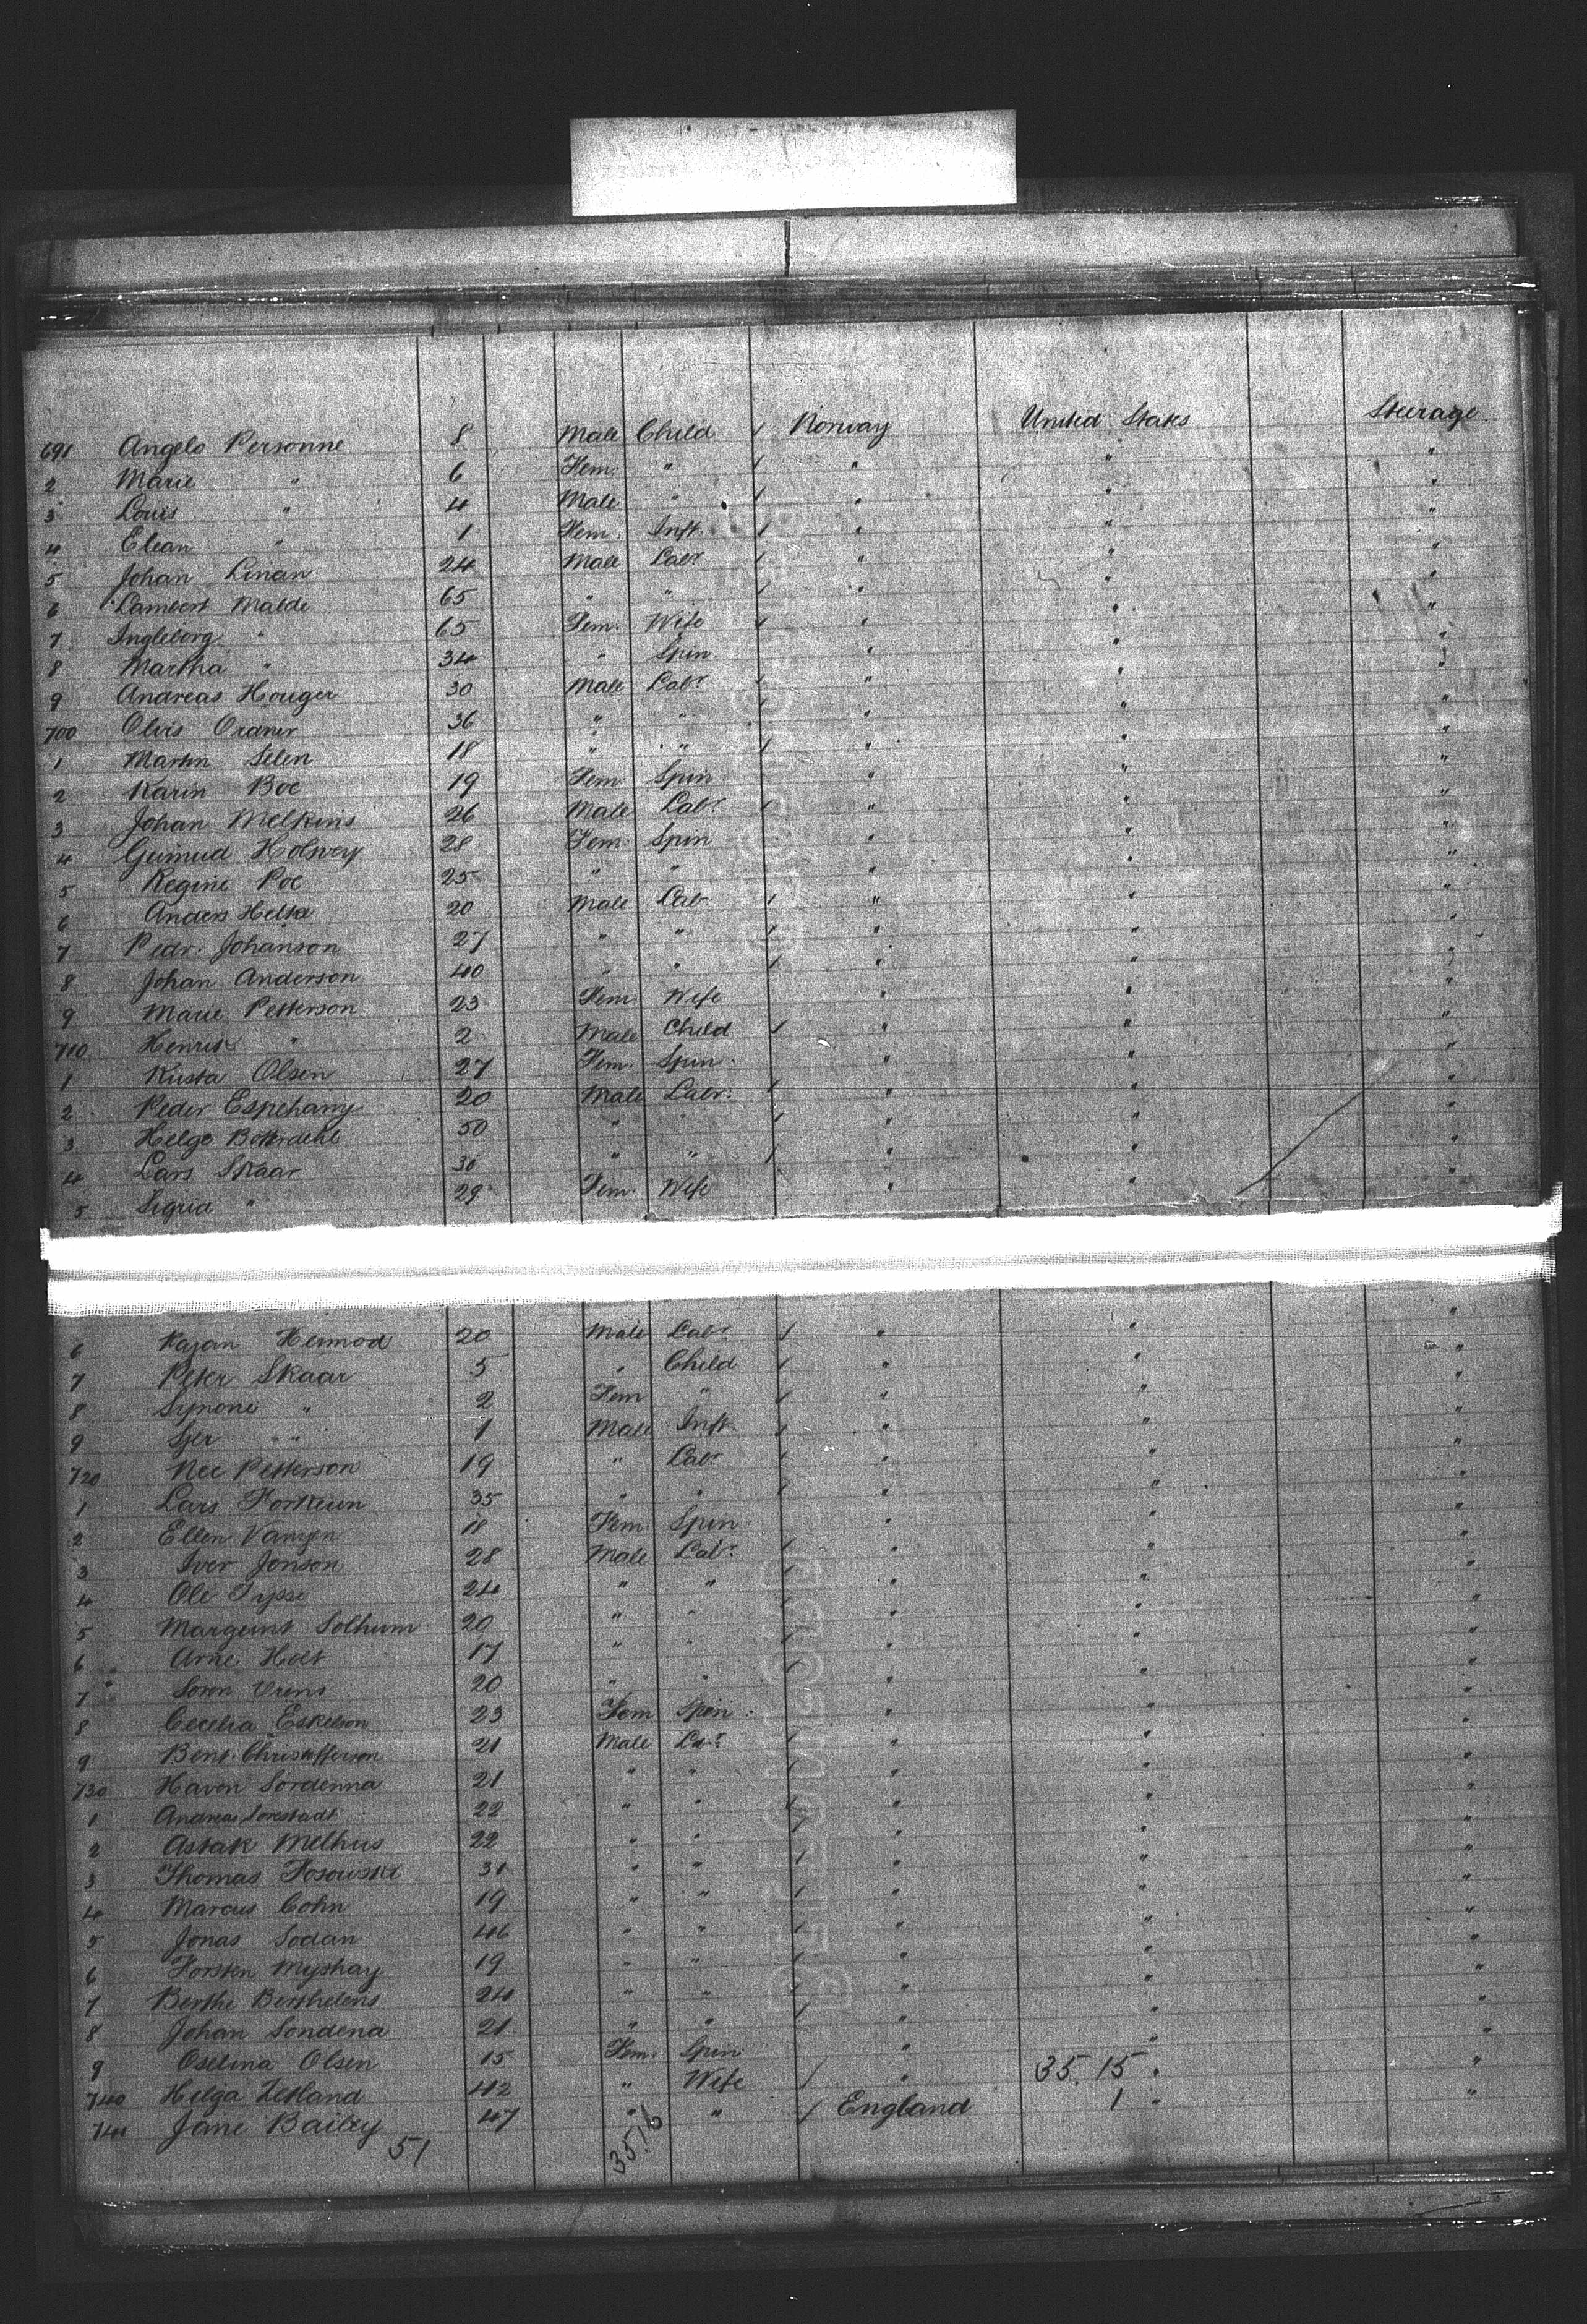 691 Angelo Personne 8 Male Child / Norway United States Steerage
2 Marie " 6 Fem. " / " " "
3 Louis " 4 Male " / " " "
4 Elean " 1 Fem. Inft. / " " "
5 Johan Linan 24 Male Labr / " " "
6 Lambert Malde 65 " " / " " "
7 Ingleborg " 65 Fem. Wife / " " "
8 Martha " 34 " Spin. " " "
9 Andreas Houger 30 Male Labr / " " "
700 Olvis Ordner 36 " " / " " "
1 Martin Selen 18 " " / " " "
2 Karin Boe 19 Fem Spin. " " "
3 Johan Melkins 26 Male Labr / " " "
4 Holsvey 28 Fem. Spin " " "
5 Regine Poe 25 " " " " "
6 Anders Helta 20 Male Labr. / " " "
7 Pedr. Johanson 27 " " / " " "
8 Johan Anderson 40 " " / " " "
9 Marie Petterson 23 Fem. Wife " " "
710 Henrik " 2 Male Child / " " "
1 Kusta Olsen 27 Fem. Spin. " " "
2 Peder Espehany 20 Male Labr. / " " "
3 Helge 50 " " / " " "
4 Lars Skaar 30 " " / " " "
5 Sigria " 29 Fem. Wife " " "
6 Kajan Hermod 20 Male Labr / " " "
7 Peter Skaar 5 " Child / " " "
8 Synone " 2 Fem " / " " "
9 " 1 Male Inft. / " " "
720 Nee Petterson 19 " Labr / " " "
1 Lars 35 " " / " " "
2 Ellen Vangen 18 Fem. Spin. " " "
3 Iver Jonson 28 Male Labr / " " "
4 Ole Tysse 24 " " / " " "
5 Solhum 20 " " / " " "
6 Arne Holt 17 " " / " " "
7 Soren Urens 20 " " / " " "
8 Cecelia Eskelson 23 Fem Spin. " " "
9 Bent. Christofferson 21 Male Labr / " " "
730 Haven Sordenna 21 " " / " " "
1 Andreas Lorestadt 22 " " / " " "
2 Astak Melhus 22 " " / " " "
3 Thomas Fosowski 31 " " / " " "
4 Marcus Cohn 19 " " / " " "
5 Jonas Sodan 46 " " / " " "
6 Torsten Myshay 19 " " / " " "
7 Berthe Berthelens 24 " " / " " "
8 Johan Sondena 21 " " / " " "
9 Oselina Olsen 15 Fem. Spin " " "
740 Helga Zetland 42 " Wife / " 35.15. "
741 Jane Bailey 47 " " / England 1 " "
51 35.16